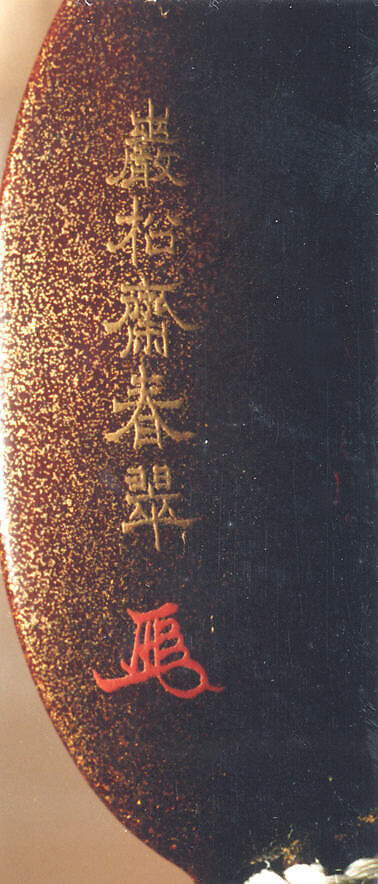 巖松齋春翠